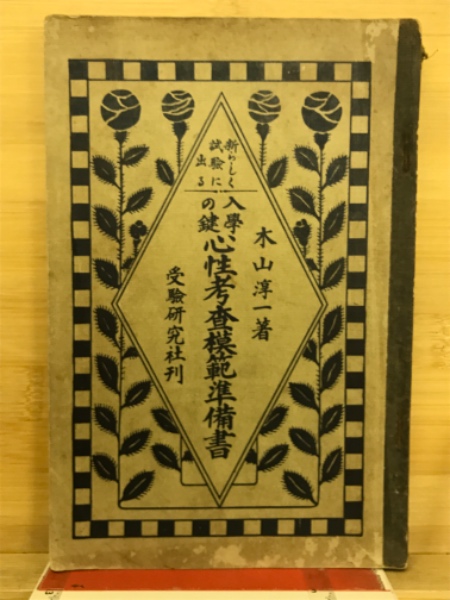 新らしく
試驗に
出る
入學
の鍵
心性考査模範準備書
木山淳一著
受驗研究社刊